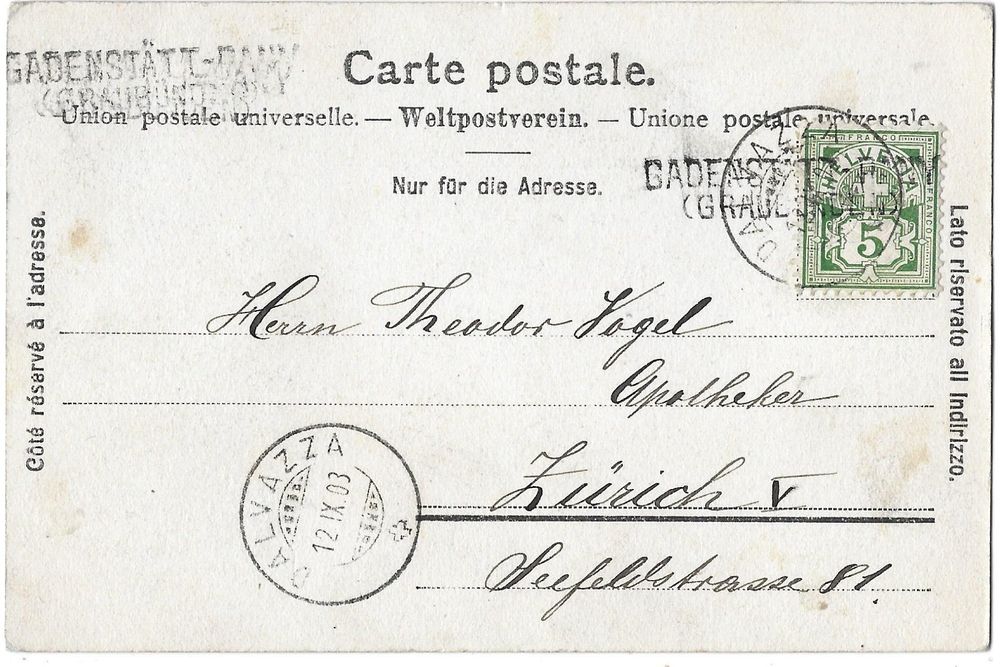 GADENSTÄTT-PANY
(GRAUBÜNDEN)
Carte postale.
Union postale universelle. — Weltpostverein. — Unione postale universale.
Nur für die Adresse.
GADENSTÄTT
(GRAUBÜNDEN)
DALVAZZA
FRANCO
HELVETIA
FRANCO
5
Côté réservé à l'adresse.
Lato riservato all Indirizzo.
Herrn Theodor Vogel
Apotheker
Zürich V
Seefeldstrasse 81.
DALVAZZA
12.IX.03